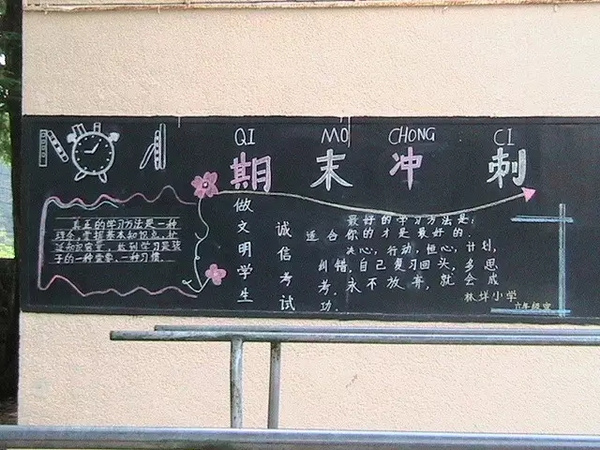 QI MO CHONG CI
期末冲刺
真正的学习方法是一种
理念,掌握基本知识点,
子的一种 一种习惯
做文明学生
诚信考试
最好的学习方法是:
适合你的才是最好的.
决心,行动,恒心,计划,
纠错,自己复习回头,多思
考,永不放弃,就会成
功.
林垟小学
六年级宣